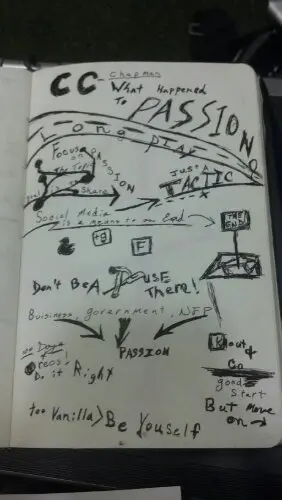 CC - Chapman
What Happened
To PASSION?
Long Play
Focus
on
The Topic
PASSION
Share
Just A
TACTIC
Social Media
is a means to an End
THE END
g+
F
Don't Be A Douse
There!
Buisiness, government, NFP
PASSION
Oreos!
Do it Right
Go
good
Start
But Move
on
too Vanilla > Be Youself